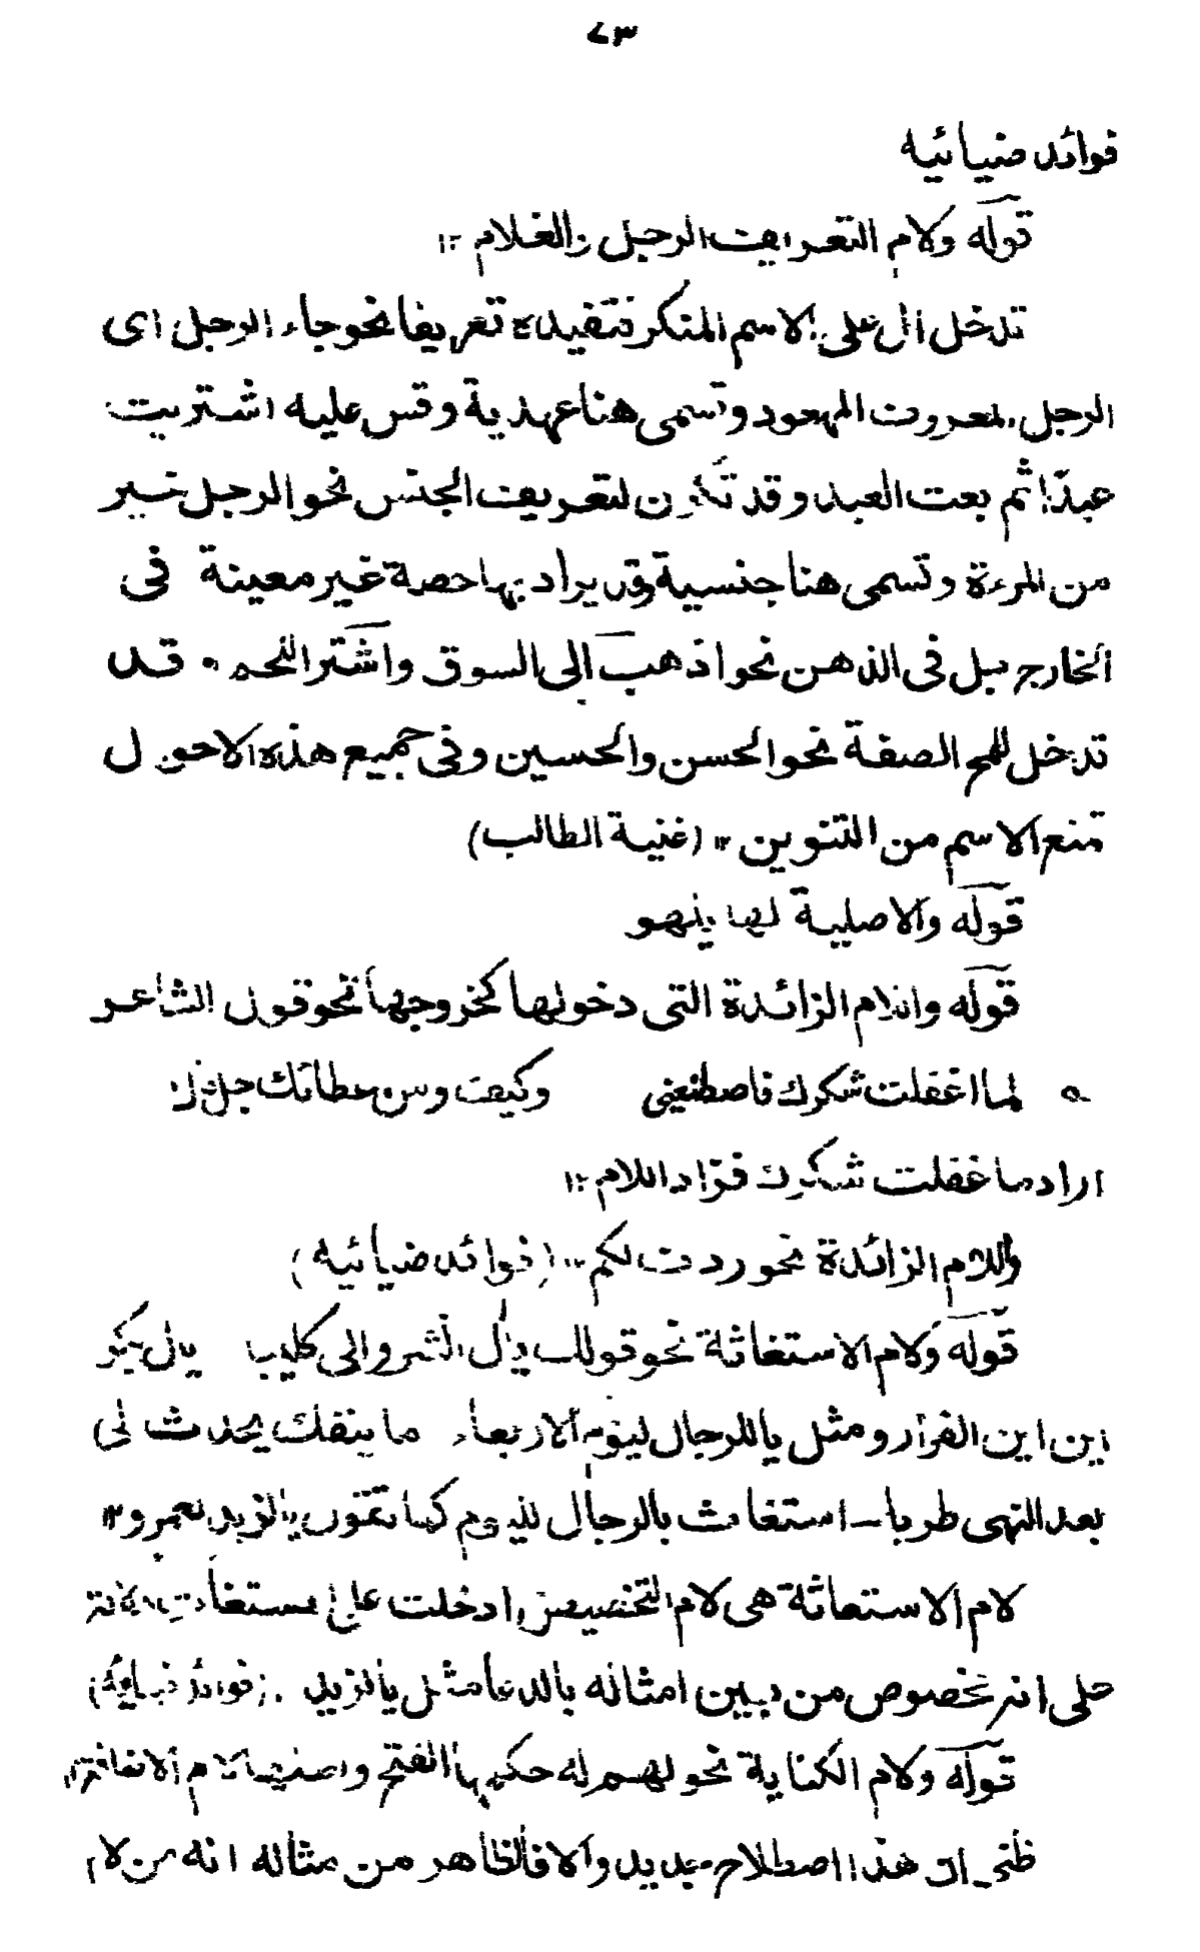 ٧٣
فوائد ضيائيه
قوله ولام التعريف الرجل والغلام ١٢
تدخل ال على الاسم المنكر فتفيده تعريفا نحو جاء الرجل اى
الرجل المعروف المعهود وتسمى هنا عهدية وقس عليه اشتريت
عبدًا ثم بعت العبد وقد تكون لتعريف الجنس نحو الرجل خير
من المرءة وتسمى هنا جنسية وقد يراد بها حصة غير معينة فى
الخارج بل فى الذهن نحو اذهب الى السوق واشتر اللحم ٠ قد
تدخل للمح الصفة نحو الحسن والحسين وفى جميع هذه الاحول
تمنع الاسم من التنوين ١٢ (غنية الطالب)
قوله والاصلية لها يلهو
قوله واللام الزائدة التى دخولها كخروجها نحو قول الشاعر
ه لما اغفلت شكرك فاصطنعنى وكيف ومن عطائك جل
اراد ما غفلت شكرك فزاد اللام ١٢
واللام الزائدة نحو ردف لكم ١٢ (فوائد ضيائيه)
قوله ولام الاستغاثة نحو قولك يال انشروالى كليبا يال بكر
اين اين الفرار ومثل ياللرجال ليوم الاربعاء ما ينفك يحدث لى
بعد النهى طربا ـ استغاث بالرجال لليوم كما تقول يالزيد لعمرو ١٢
لام الاستغاثة هى لام التخصيص ادخلت على المستغاث دلالة
على انه مخصوص من بين امثاله بالدعا مثل يالزيد ٠ (فوائد ضيائيه)
قوله ولام الكناية نحو لهم له حكمها الفتح واصلها لام الاضافة
ظنى ان هذا اصطلاح جديد والا فالظاهر من مثاله انه من لام